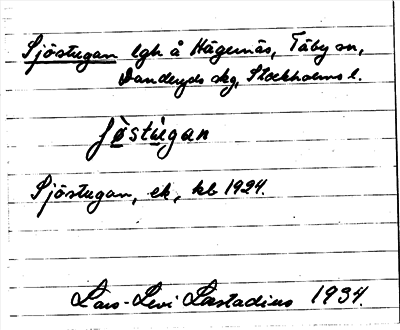 Sjöstugan lgh å Hägernäs, Täby sn,
Danderyds skg, Stockholms l.
ʃöstugan
Sjöstugan, ek, kb 1924.
Lars-Levi Læstadius 1934.